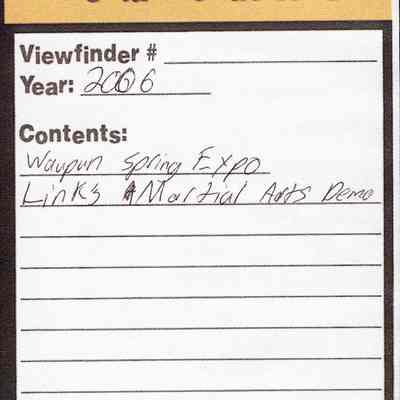 Viewfinder #
Year: 2006
Contents:
Waupun Spring Expo
Links Martial Arts Demo